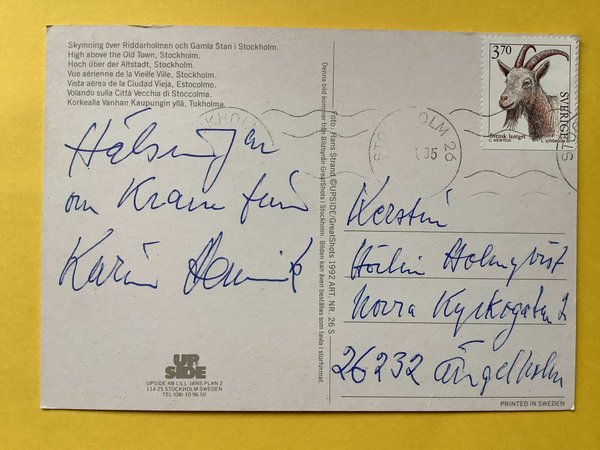 Skymning över Riddarholmen och Gamla Stan i Stockholm.
High above the Old Town, Stockholm.
Hoch über der Altstadt, Stockholm.
Vue aérienne de la Vieille Ville, Stockholm.
Vista aérea de la Ciudad Vieja, Estocolmo.
Volando sulla Città Vecchia di Stoccolma.
Korkealla Vanhan Kaupungin yllä, Tukholma.
Hälsningar
om Kram från
Karin
UP
SIDE
UPSIDE AB LILL JANS PLAN 2
114 25 STOCKHOLM SWEDEN
TEL (08) 10 96 50
Foto: Hans Strand ©UPSIDE/GreatShots 1992 ART. NR. 26 S
Denna bild kommer från Bildbyrån GreatShots i Stockholm. Bilden kan även beställas som tavla i storformat.
3,70
SVERIGE
Svensk lantget
C. NEWTON
L. SJÖÖBLOM
STOCKHOLM 26
95
Kerstin
Holmqvist
Norra Kyrkogatan 2
26232 Ängelholm
PRINTED IN SWEDEN